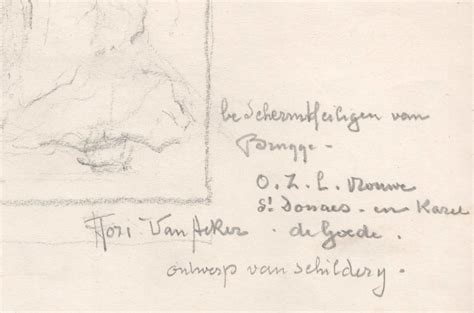 beschermheiligen van
Brugge -
O. L. L. Vrouwe
St Donaes - en Karel
Flori Van Acker . de Goede .
ontwerp van schildery .